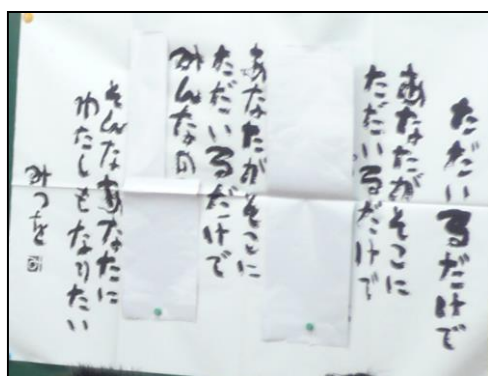 ただいるだけで
あなたがそこに
ただいるだけで
あなたがそこに
ただいるだけで
みんなの
そんなあなたに
わたしもなりたい
みつを